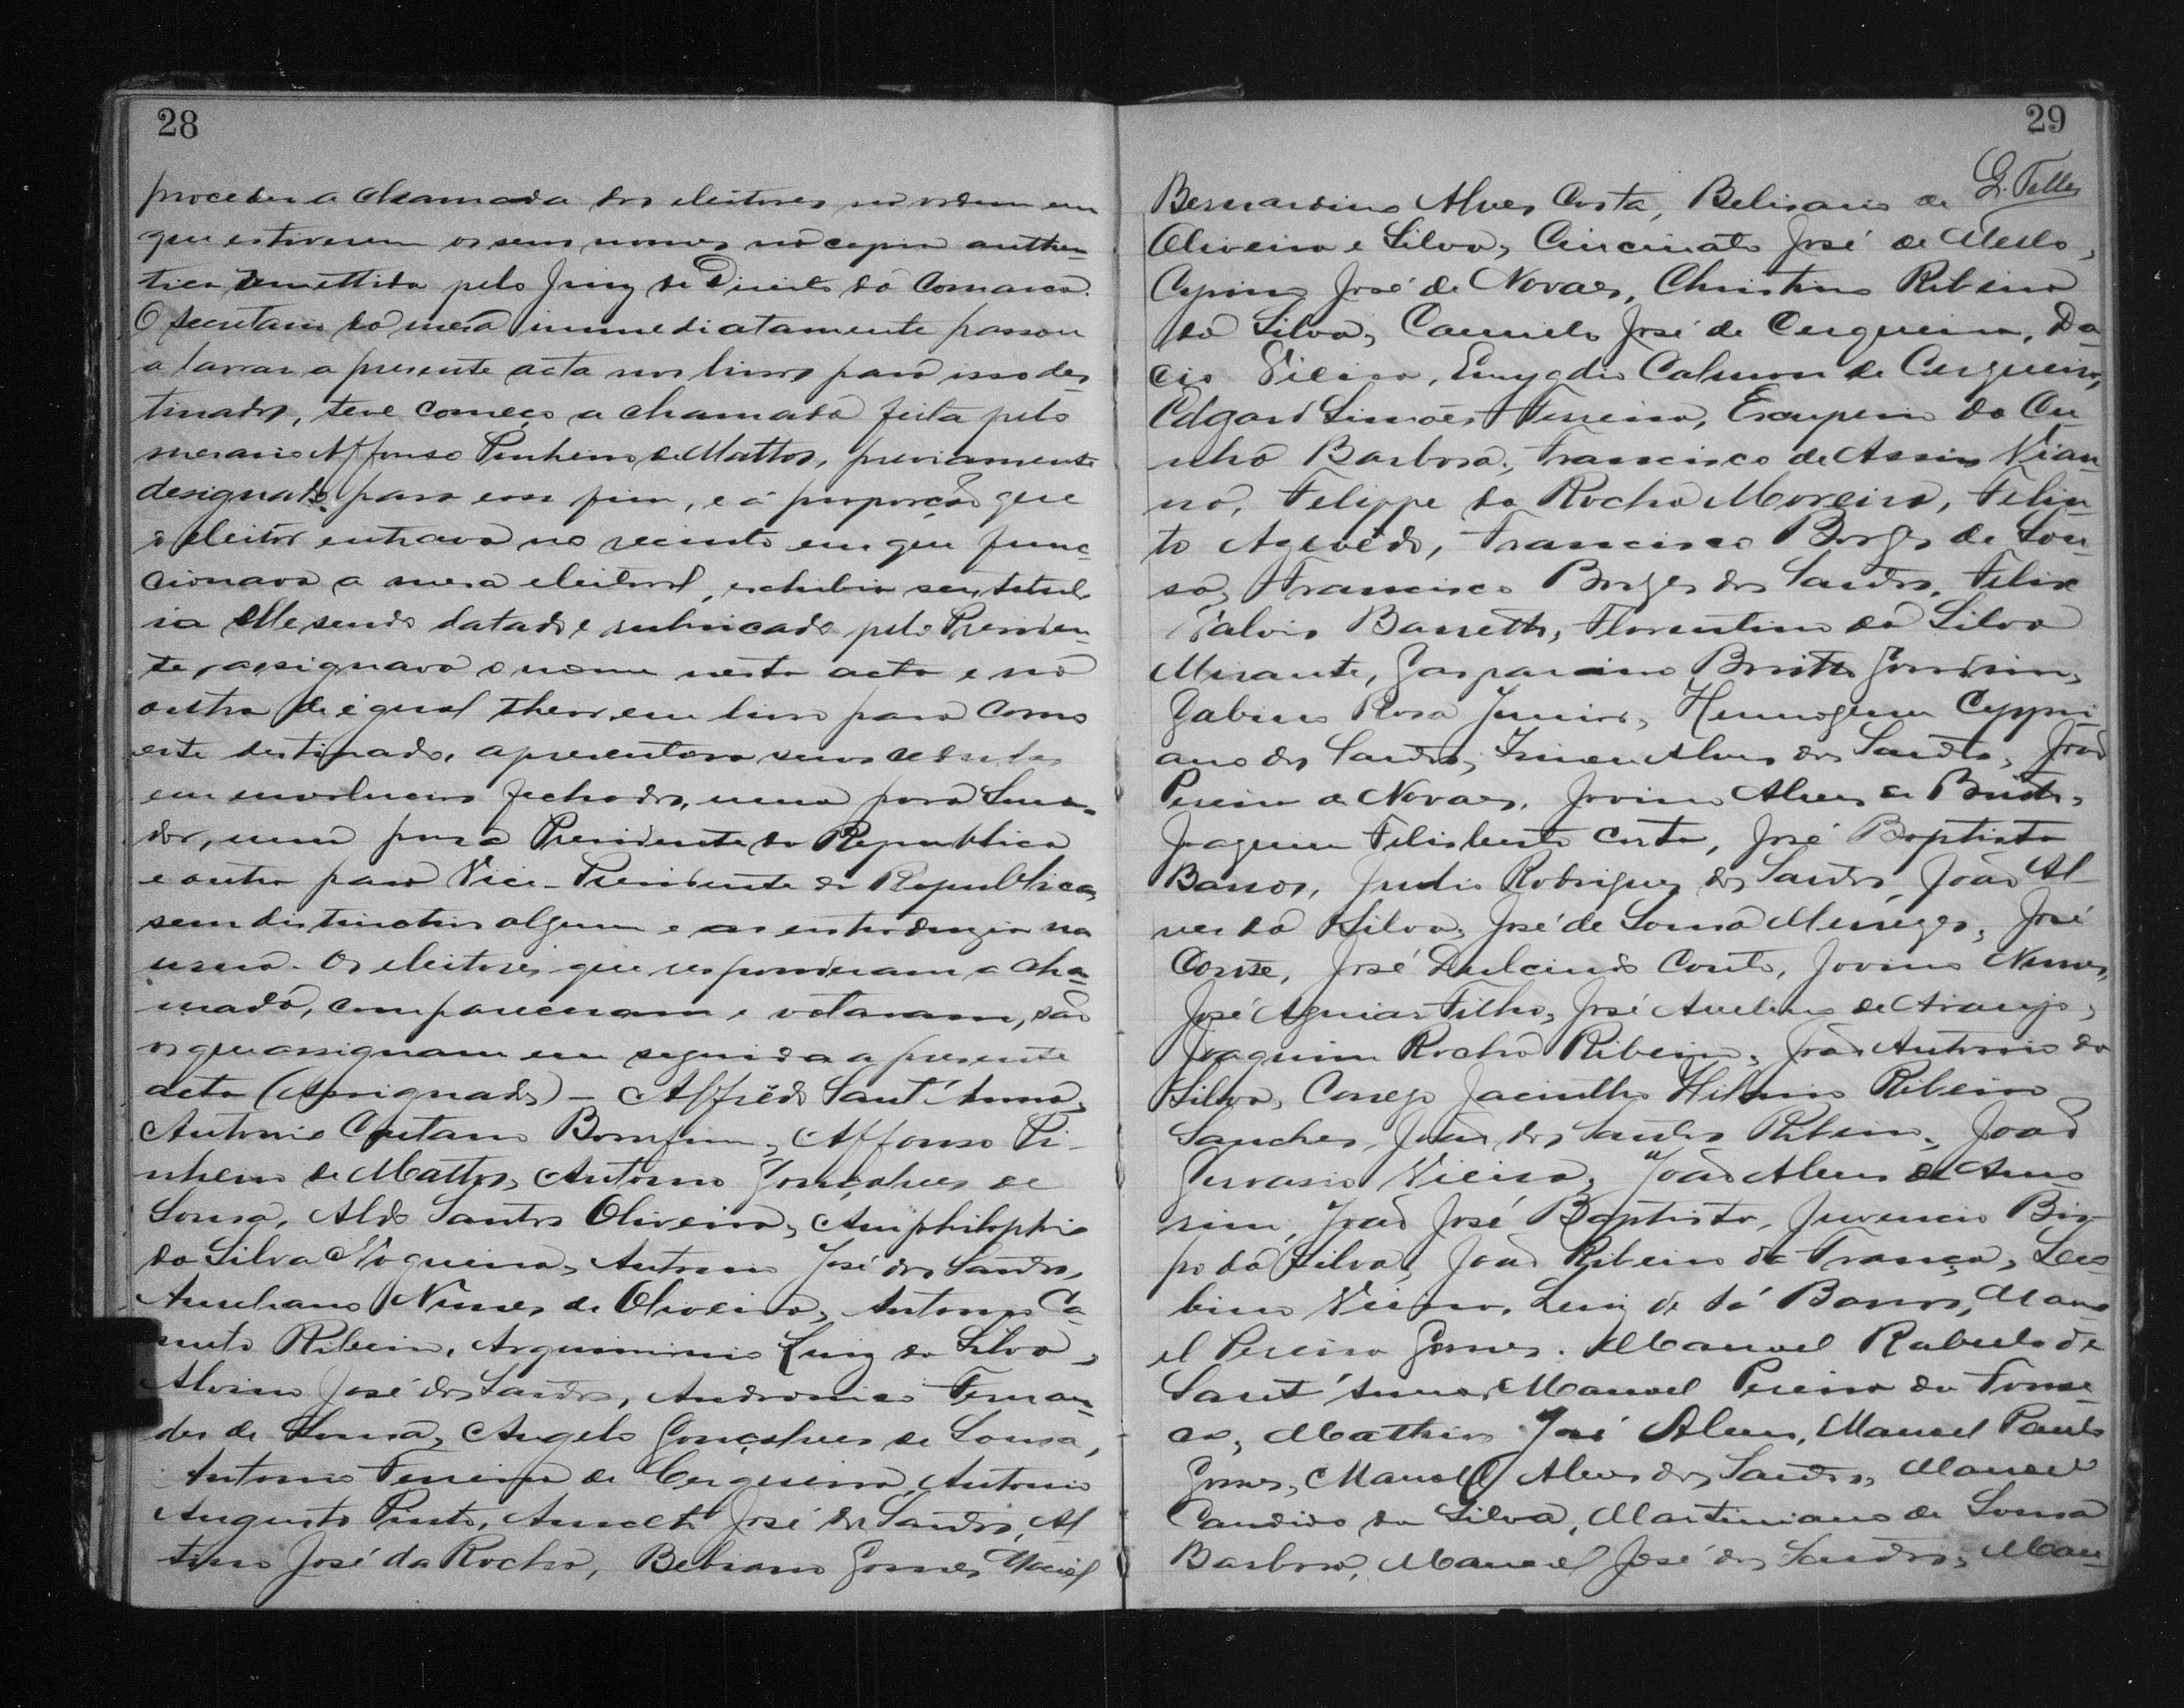 28
proceder a chamada dos eleitores na ordem em
que estiverem os seus nomes na copia authen-
tica remettida pelo Juiz de Direito da Comarca.
O secretario da mesa immediatamente passou
a lavrar a presente acta nos livros para isso des
tinados, teve começo a chamada feita pelo
mesario Affonso Pinheiro de Mattos, previamente
designado para esse fim, e á proporção que
o eleitor entrava no recinto em que func-
cionava a mesa eleitoral, exhibia seu titulo
elle sendo datado e rubricado pelo Presiden-
te, assignava o nome nesta acta e na
outra de egual theor em livro para como
este destinado, apresentava suas cedulas
em envolucros fechados, uma para Sena-
dor, uma para Presidente da Republica
e outra para Vice-Presidente da Republica,
sem distinctivo algum e as introduzia na
urna. Os eleitores que responderam a cha-
mada, compareceram e votaram, são
os que assignam em seguida a presente
acta (Assignados) - Alfrêdo Sant'Anna,
Antonio Caetano Bomfim, Affonso Pi-
nheiro de Mattos, Antonio Gonçalves de
Sousa, Aldo Santos Oliveira, Amphilophio
da Silva Nogueira, Antonio José dos Santos,
Aureliano Nunes de Oliveira, Antonio Ca-
nuto Ribeiro, Argumiro Luiz da Silva,
Alvino José dos Santos, Andronico Fernan-
des de Sousa, Angelo Gonçalves de Sousa,
Antonio Ferreira de Cerqueira, Antonio
Augusto Pinto, Anacleto José dos Santos, Al
tino José da Rocha, Bebiano Gomes Maciel
29
G. Telles
Bernardino Alves Costa, Belisario de
Oliveira e Silva, Cincinato José de Mello,
Cypriano José de Novaes, Christino Ribeiro
da Silva, Camillo José de Cerqueira, Da-
cio Vieira, Emygdio Calmon de Cerqueira,
Edgard Simões Ferreira, da Cu
nha Barbosa, Francisco de Assis Vian-
na, Felippe da Rocha Moreira, Felin-
to Azevêdo, Francisco Borges de Sou-
sa, Francisco Borges dos Santos, Felix
Galvio Barretto, Florentino da Silva
Mirante, Gasparino Britto Gondim,
Gabino Rosa Junior, Hermogenes Cypri-
ano dos Santos, Isineu Alves dos Santos, João
Pereira de Novaes, Jovino Alves de Britto,
Joaquim Felisberto Costa, José Baptista
Barros, Julio Rodrigues dos Santos, João Al-
ves da Silva, José de Sousa Menezes, José
Corte, José Dulcindo Couto, Jovino Nunes,
José Aguiar Filho, José Avelino de Araujo,
Joaquim Rocha Ribeiro, João Antonio da
Silva, Conego Jacintho Hilario Ribeiro
Sanches, João dos Santos Ribeiro, João
Gervasio Vieira, João Alves de Amo
rim, João José Baptista, Juvencio Bis-
po da Silva, João Ribeiro de França, Leo-
bino Vieira, Luiz de Sá Barros, Mano
el Pereira Gomes, Manoel Rabello de
Sant'Anna, Manoel Pereira da Fonse
ca, Mathias José Alves, Manoel Paulo
Gomes, Manoel Alves dos Santos, Manoel
Candido da Silva, Martiniano de Sousa
Barbosa, Manoel José dos Santos, Man-